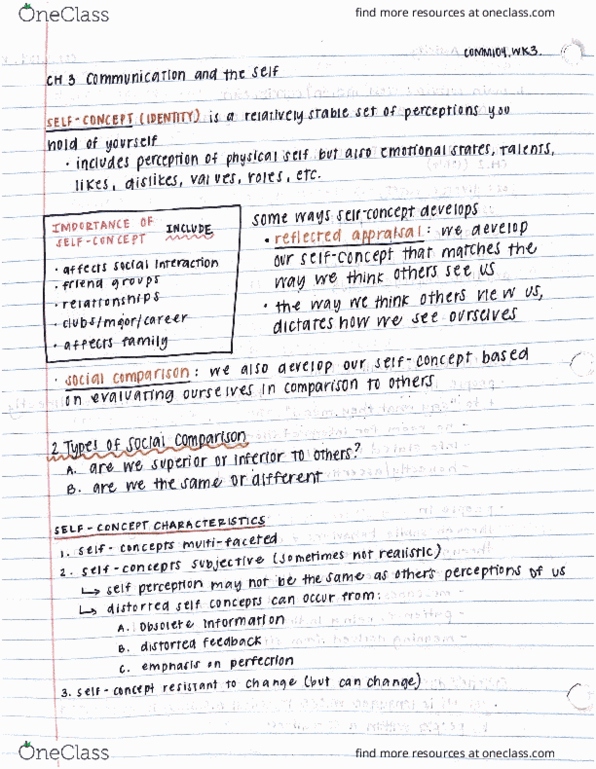 OneClass
find more resources at oneclass.com
COMM104, WK3.
CH.3 Communication and the Self
SELF-CONCEPT (IDENTITY) is a relatively stable set of perceptions you
hold of yourself
• includes perception of physical self but also emotional states, talents,
likes, dislikes, values, roles, etc.
IMPORTANCE OF
SELF-CONCEPT INCLUDE
• affects social interaction
• friend groups
• relationships
• clubs/major/career
• affects family
some ways self-concept develops
• reflected appraisal: we develop
our self-concept that matches the
way we think others see us
• the way we think others view us,
dictates how we see ourselves
• social comparison: we also develop our self-concept based
on evaluating ourselves in comparison to others
2 Types of Social Comparison
A. are we superior or inferior to others?
B. are we the same or different
SELF-CONCEPT CHARACTERISTICS
1. self-concepts multi-faceted
2. self-concepts subjective (sometimes not realistic)
↳ self perception may not be the same as others perceptions of us
↳ distorted self concepts can occur from:
A. obsolete information
B. distorted feedback
C. emphasis on perfection
3. self-concept resistant to change (but can change)
OneClass
find more resources at oneclass.com